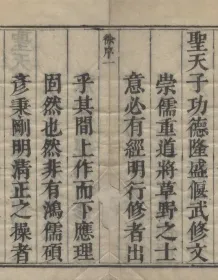 聖天子功德隆盛偃武修文
崇儒重道將草野之士
意必有經明行修者出
序一
乎其間上作而下應理
固然也然非有鴻儒碩
彦秉剛明清正之操者